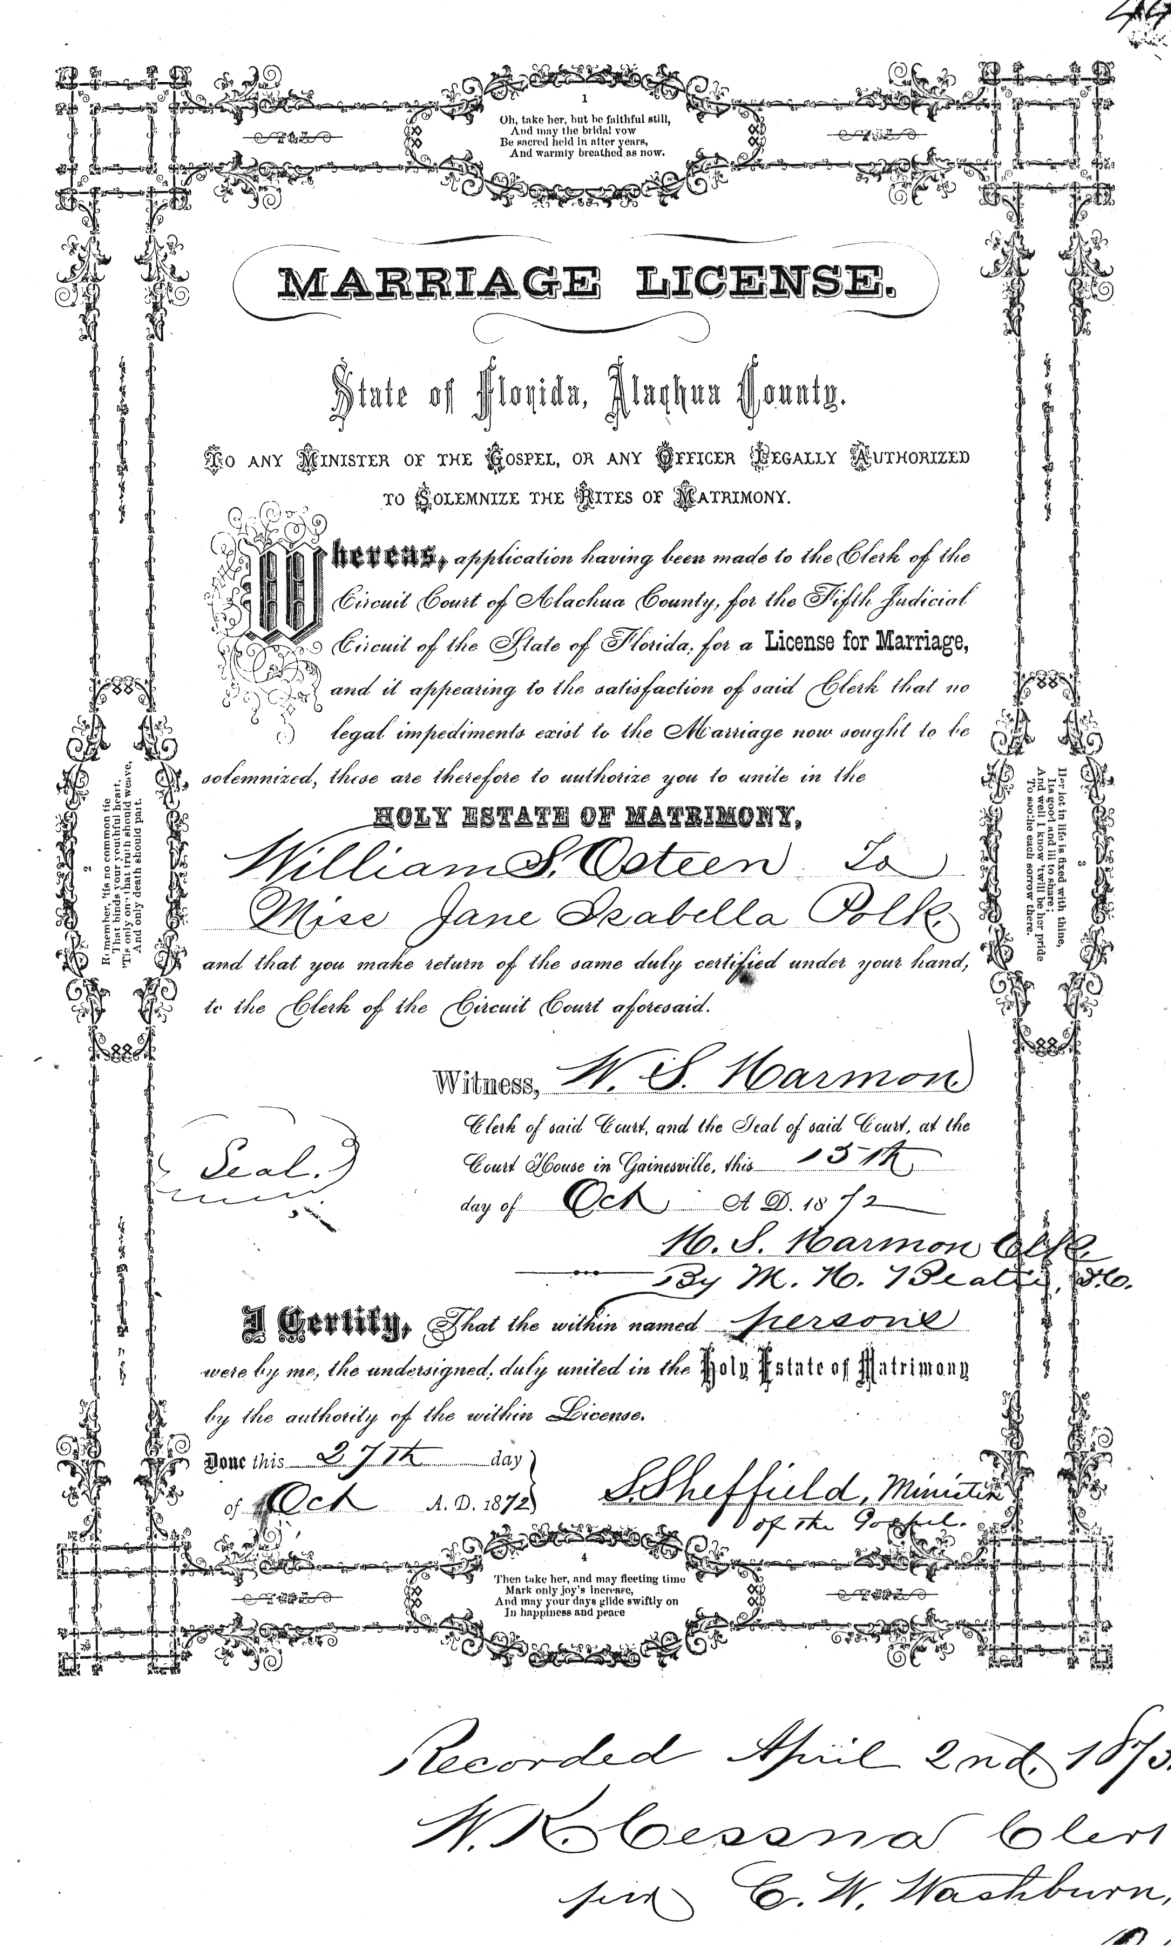 1
Oh, take her, but be faithful still,
And may the bridal vow
Be sacred held in after years,
And warmly breathed as now.
MARRIAGE LICENSE.
State of Florida, Alachua County.
TO ANY MINISTER OF THE GOSPEL, OR ANY OFFICER LEGALLY AUTHORIZED
TO SOLEMNIZE THE RITES OF MATRIMONY.
Whereas, application having been made to the Clerk of the
Circuit Court of Alachua County, for the Fifth Judicial
Circuit of the State of Florida, for a License for Marriage,
and it appearing to the satisfaction of said Clerk that no
legal impediments exist to the Marriage now sought to be
solemnized, these are therefore to authorize you to unite in the
HOLY ESTATE OF MATRIMONY,
William S. Osteen To
Miss Jane Isabella Polk.
and that you make return of the same duly certified under your hand,
to the Clerk of the Circuit Court aforesaid.
2
Remember, 'tis no common tie
That binds your youthful heart.
'Tis only one that truth should weave,
And only death should part.
3
Her lot in life is fixed with thine,
Its good and ill to share;
And well I know 'twill be her pride
To soothe each sorrow there.
Witness, W. S. Harmon
Clerk of said Court, and the Seal of said Court, at the
Court House in Gainesville, this 15th
day of Oct A. D. 1872
Seal.
W. S. Harmon Clk.
By M. H. D.C.
I Certify, That the within named persons
were by me, the undersigned, duly united in the Holy Estate of Matrimony
by the authority of the within License.
Done this 27th day
of Oct A. D. 1872
S. Sheffield, Minister
of the Gospel.
4
Then take her, and may fleeting time
Mark only joy's increase,
And may your days glide swiftly on
In happiness and peace
Recorded April 2nd, 1873.
W. K. Cessna Clerk
per C. W. Washburn,